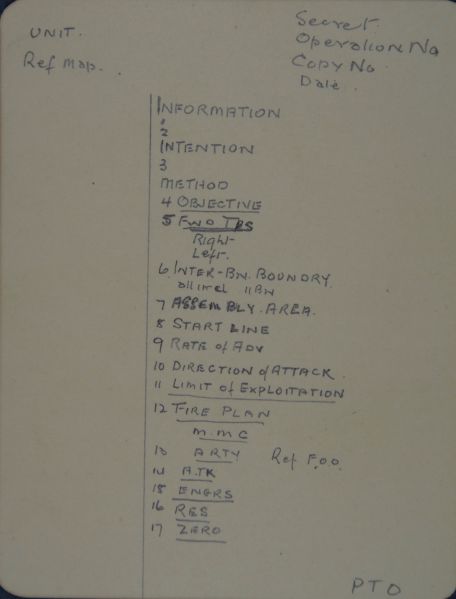 UNIT.
Secret.
Operation No
Ref Map.
Copy No
Date.
INFORMATION
1
2
INTENTION
3
METHOD
4 OBJECTIVE
5 FWD TPS
Right
Left.
6 INTER-BN. BOUNDRY.
all incl 11 BN
7 ASSEMBLY. AREA.
8 START LINE
9 RATE of ADV
10 DIRECTION of ATTACK.
11 LIMIT of EXPLOITATION
12 FIRE PLAN
M.M.G
13 ARTY Ref F.O.O.
14 A.TK
15 ENGRS
16 RES
17 ZERO
PTO